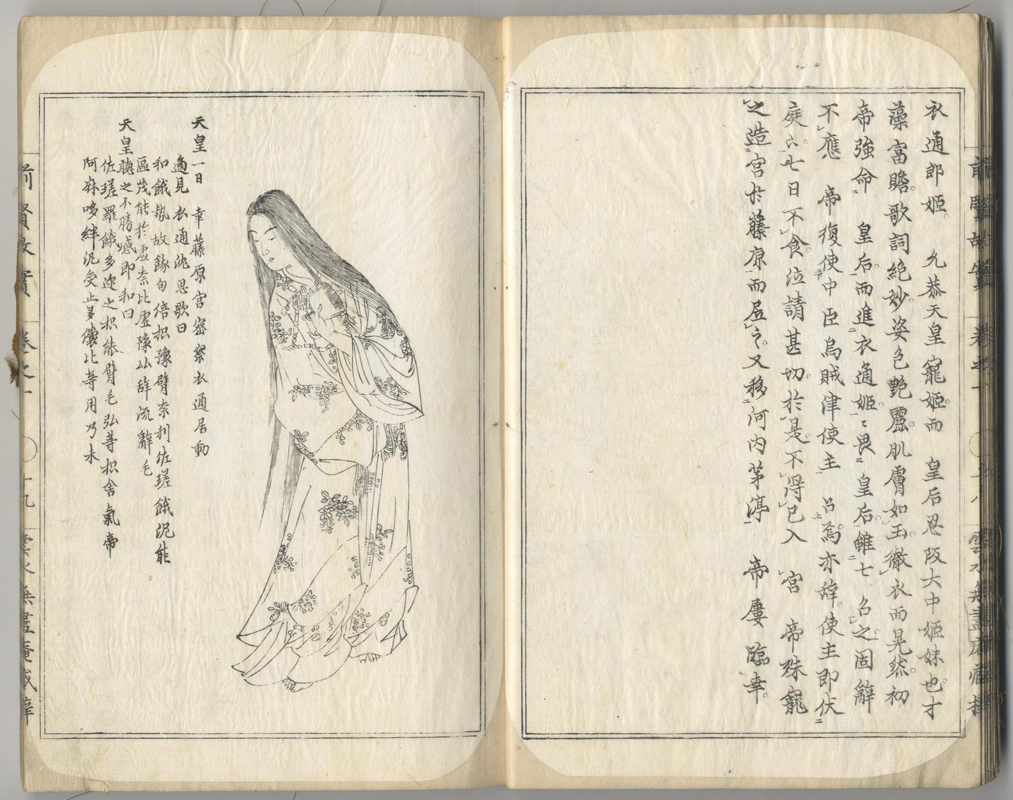 衣通郎姫 允恭天皇寵姫而 皇后忍阪大中姫妹也才
藻富贍歌詞絶妙姿色艶麗肌膚如玉徹衣而晃然初
帝強命 皇后而進衣通姫〻畏 皇后雖七 召之固辭
不應 帝復使中臣烏賊津使主 召焉亦辞使主即伏
庭六七日不食泣請甚切於是不得已入 宮 帝殊寵
之造宮於藤原而居之又移河内茅渟 帝屢臨幸
天皇一日 幸藤原宮密察衣通居動
適見衣通姫思歌曰
和餓勢故餓勾倍枳豫臂奈利佐瑳餓泥能
區茂能於虚奈比虚豫比辞流辭毛
天皇聴之不勝感即和曰
佐瑳羅餓多迩之枳能臂毛弘等枳舎氣帝
阿麻哆絆泥受止多儺比等用乃未
前賢故實 巻之一